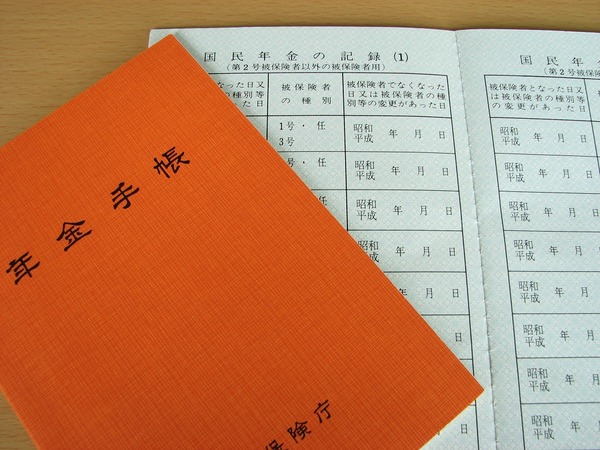 年金手帳
保険庁
国民年金の記録(1)
(第2号被保険者以外の被保険者用)
なった日又
の種別等
った日
被保険者
の種別
被保険者でなくなった
日又は被保険者の種
別等の変更があった日
1号・任
3号
昭和
平成 年 月 日
号・任
昭和
平成 年 月 日
号・任
昭和
平成 年 月 日
昭和
平成 年 月 日
年 月 日
年 月 日
月 日
日
日
国民年
(第2号被保険
被保険者となった日又
は被保険者の種別等
の変更があった日
昭和
平成 年 月 日
昭和
平成 年 月 日
昭和
平成 年 月 日
昭和
平成 年 月 日
昭和
平成 年 月 日
昭和
平成 年 月 日
昭和
平成 年 月
昭和
平成 年 月
昭和
平成 年 月